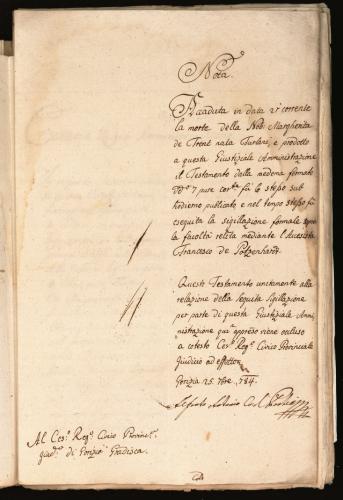 Nota
Accaduta in data 21 corrente
la morte della Nob: Margherita
de Trent nata Furlani, e prodotto
a questa Giustiziale Amministrazione
il Testamento dalla medema formato
7 pure corrte fù lo stesso sub
hodierno publicato, e nel tempo stesso fù
eseguita la sigillazione formale
la facoltà relita mediante l'Accesista
Francesco de Potzenhardt.
Questo Testamento unitamente alla
relazione della seguita Sigillazione
per parte di questa Giustiziale Ammi,
nistrazione qui appresso viene occluso
a cotesto Ces: Rego: Civico Provinciale
Giudicio ad effectum
Gorizia 25. 784.
Al Ces: Rego: Civico Provinle:
giudo: di Gorizia Gradisca.